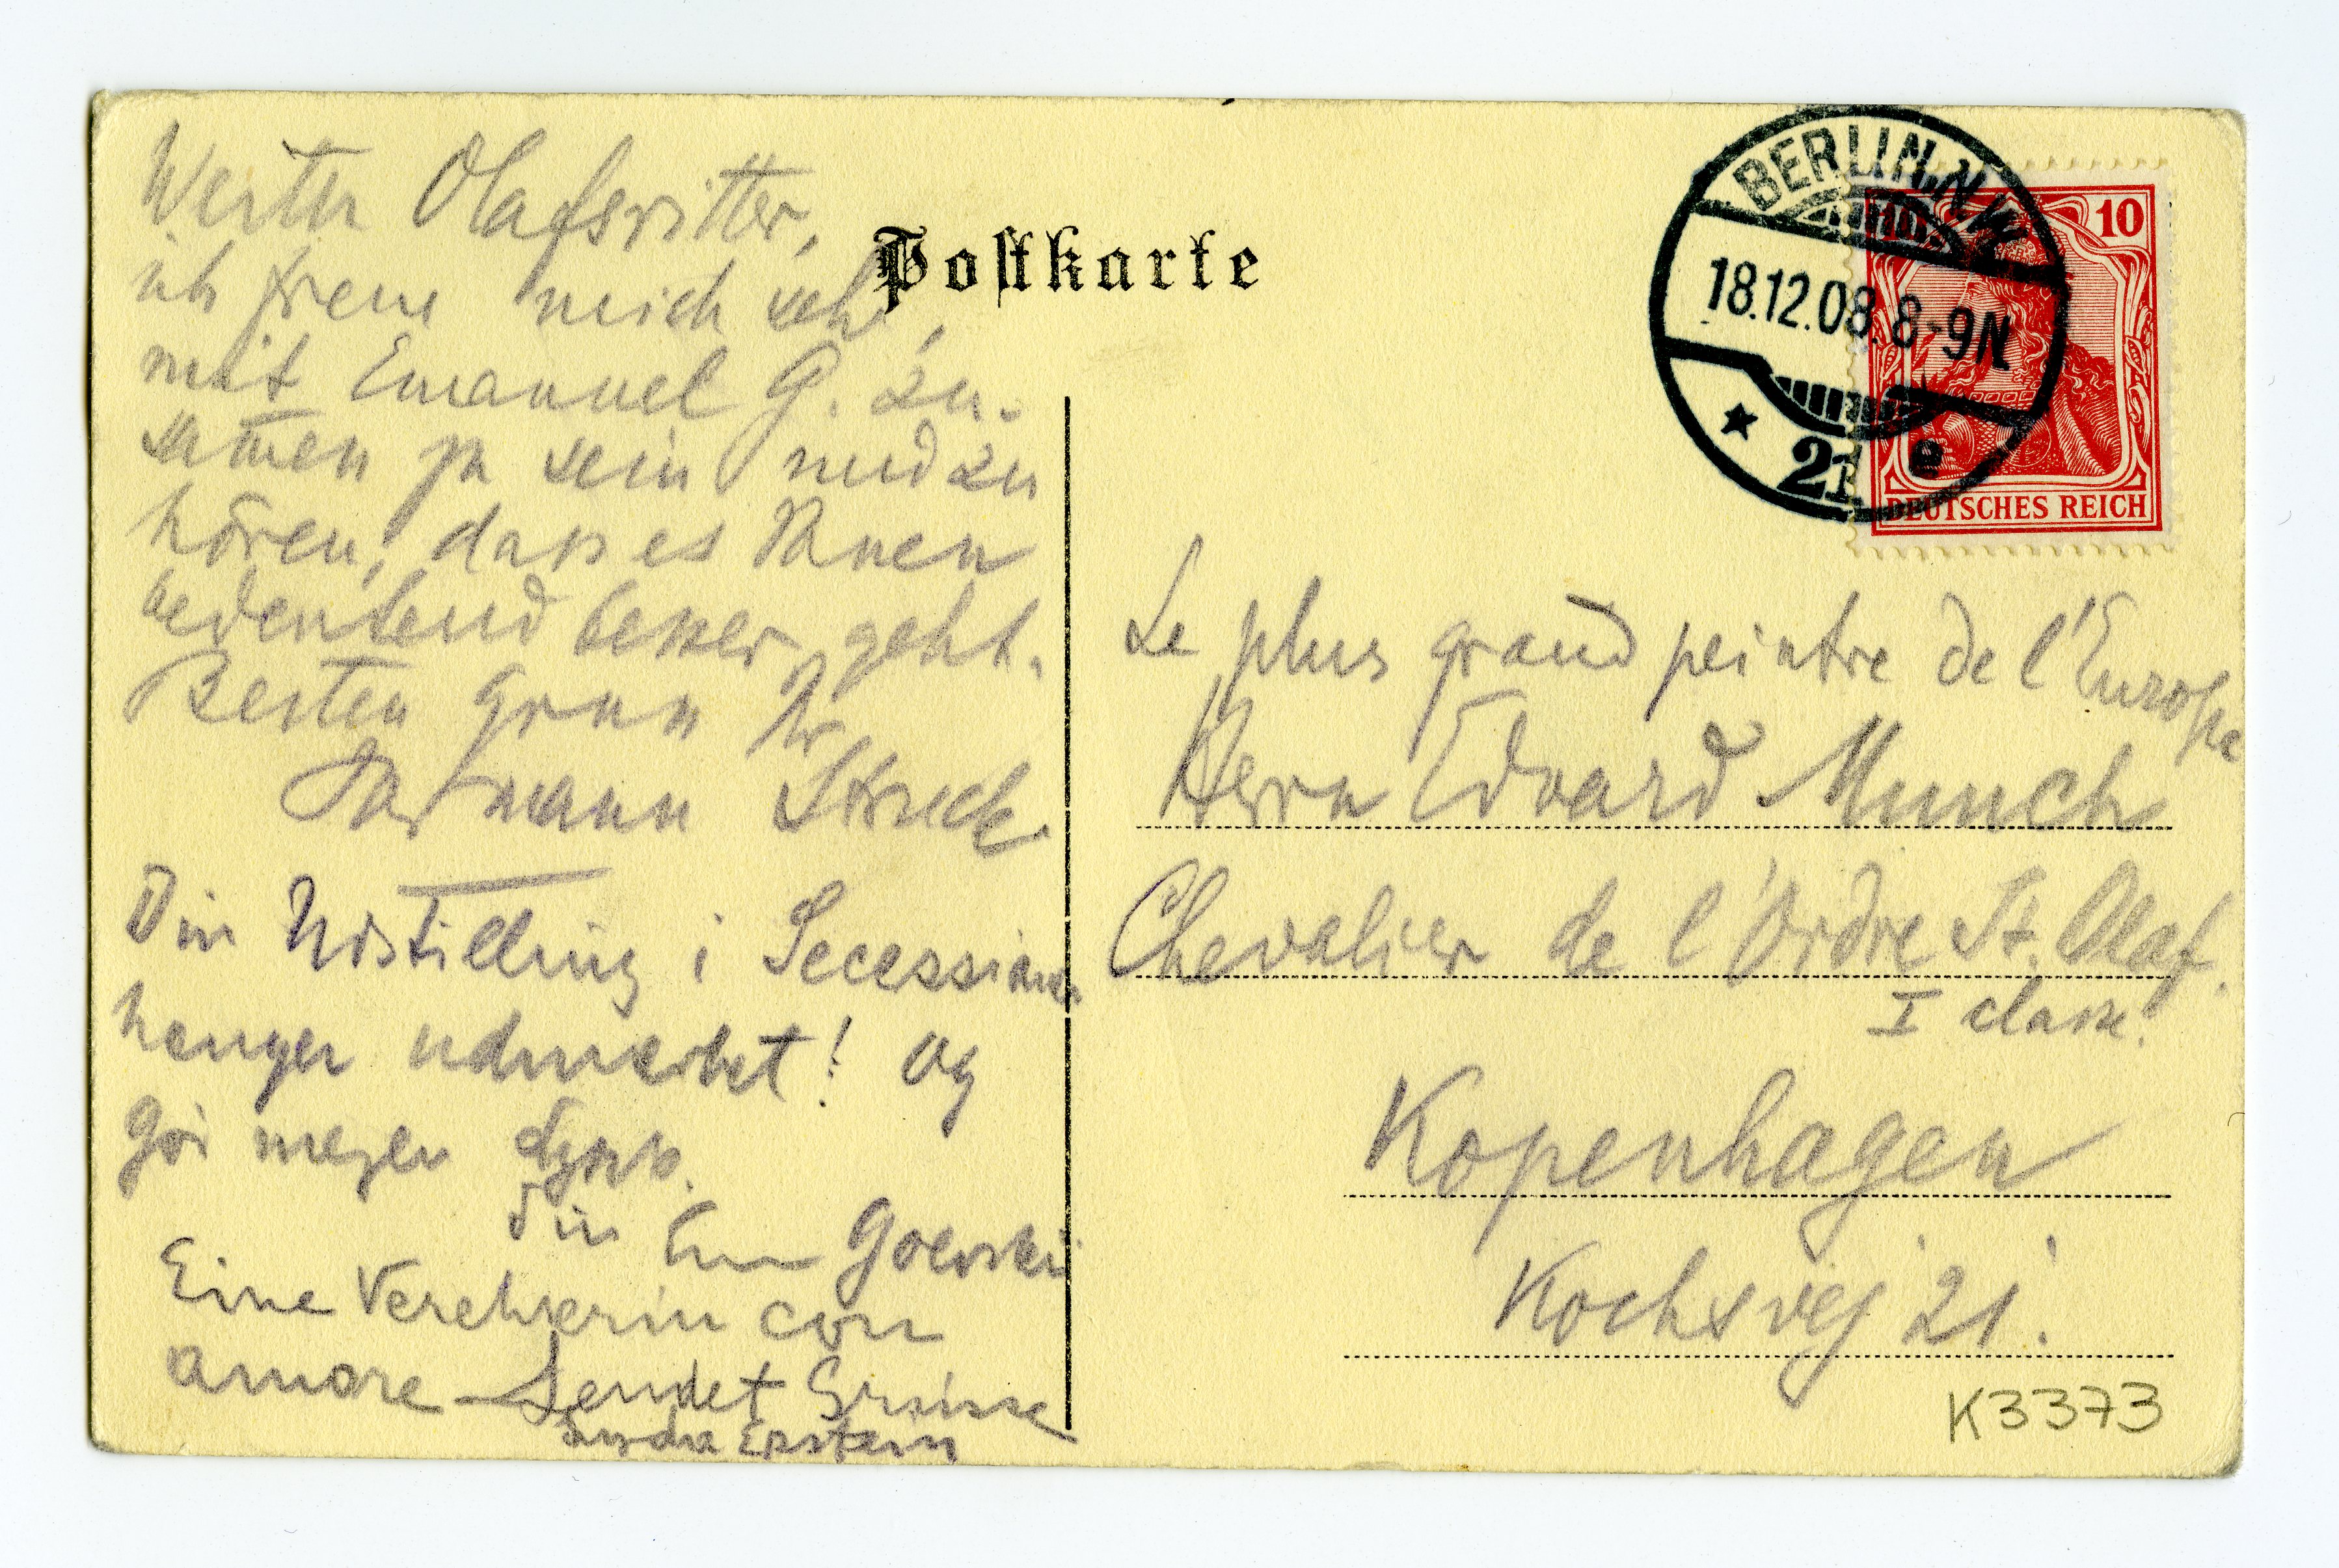 Postkarte
BERLIN. N.W.
18.12.08. 8-9N
* 21 e
10 10
DEUTSCHES REICH
Werter Olafsritter,
ich freue mich sehr,
mit Emanuel G. zu-
samen zu sein und zu
hören, dass es Ihnen
bedeutend besser geht.
Besten Gruss Ihr
Hermann Struck
Din Udstilling i Secessionen
henger udmerket! Og
gör megen
din Em Goldstein
Eine Verehrerin con
amore sendet Grüsse
Epstein
Le plus grand peintre de l'Europe
Herrn Edvard Munch
Chevalier de l'Ordre St. Olaf.
I classe!
Kopenhagen
Kochsvej 21.
K3373